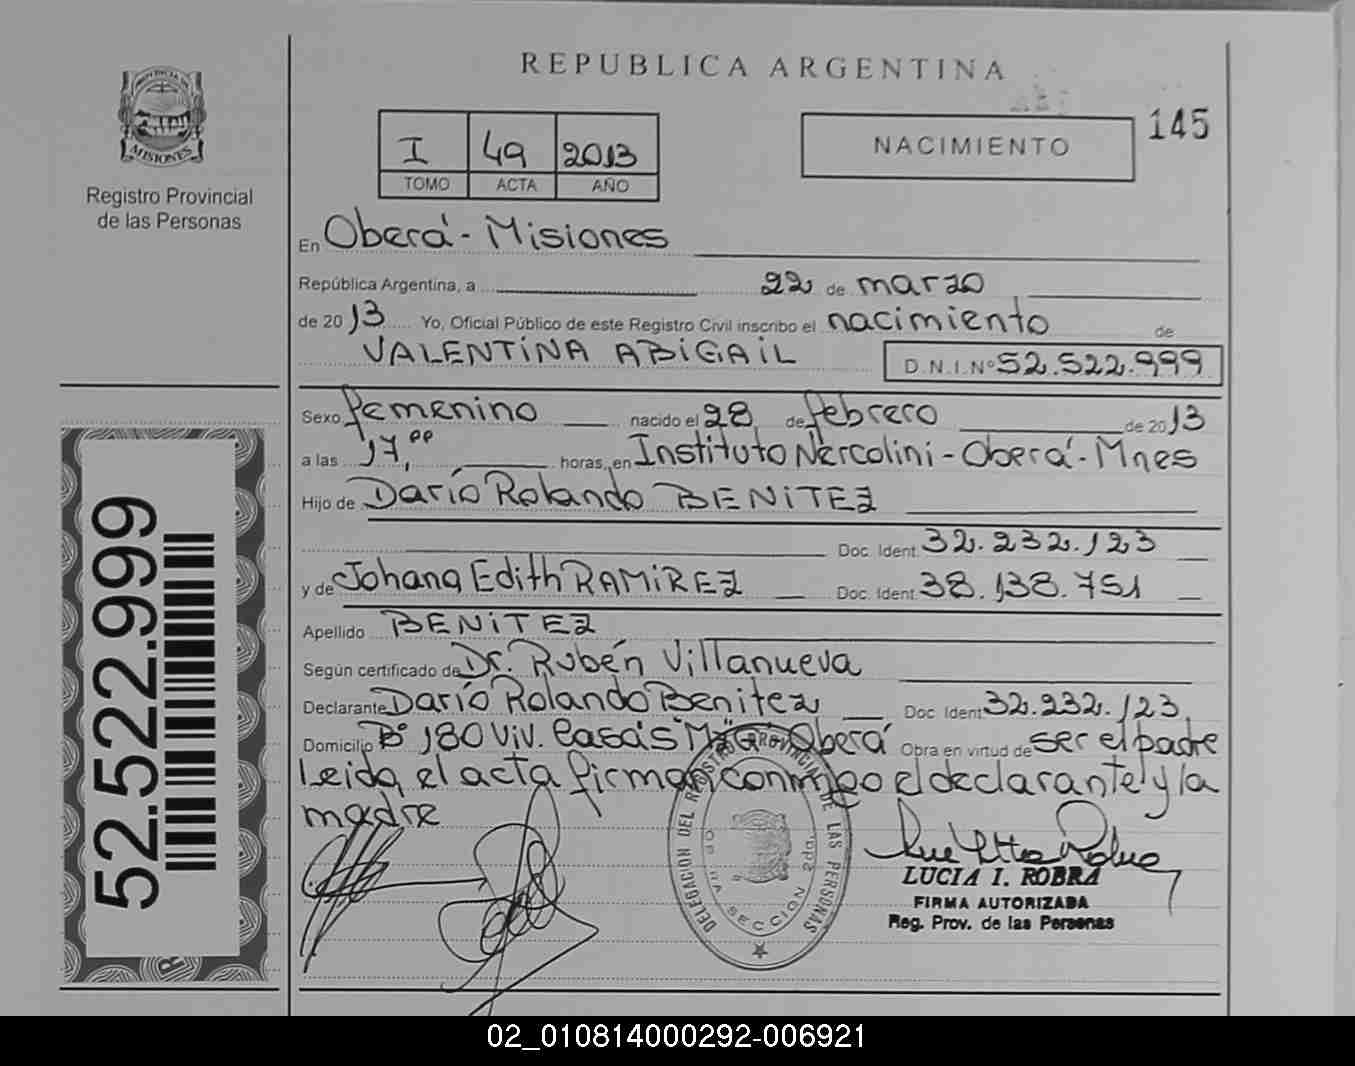 REPUBLICA ARGENTINA
PROVINCIA DE
MISIONES
Registro Provincial
de las Personas
I 49 2013
TOMO ACTA AÑO
NACIMIENTO
145
En Oberá - Misiones
República Argentina, a 22 de marzo
de 2013 Yo, Oficial Público de este Registro Civil inscribo el nacimiento de
VALENTINA ABIGAIL D.N.I.Nº 52.522.999
Sexo femenino nacido el 28 de febrero de 2013
a las 17,00 horas, en Instituto Nercolini - Oberá - Mnes
Hijo de Darío Rolando BENITEZ
Doc. Ident. 32.232.123
y de Johana Edith RAMIREZ Doc. Ident. 38.138.751
Apellido BENITEZ
Según certificado de Dr. Rubén Villanueva
Declarante Darío Rolando Benitez Doc Ident 32.232.123
Domicilio Bº 180 Viv. Casas "M" "G" - Oberá Obra en virtud de ser el padre
Leida el acta firman conmigo el declarante y la
madre
DELEGACION DEL REGISTRO PROVINCIAL DE LAS PERSONAS
SECCION 2da.
LUCIA I. ROBRA
FIRMA AUTORIZADA
Reg. Prov. de las Personas
52.522.999
R
02_010814000292-006921